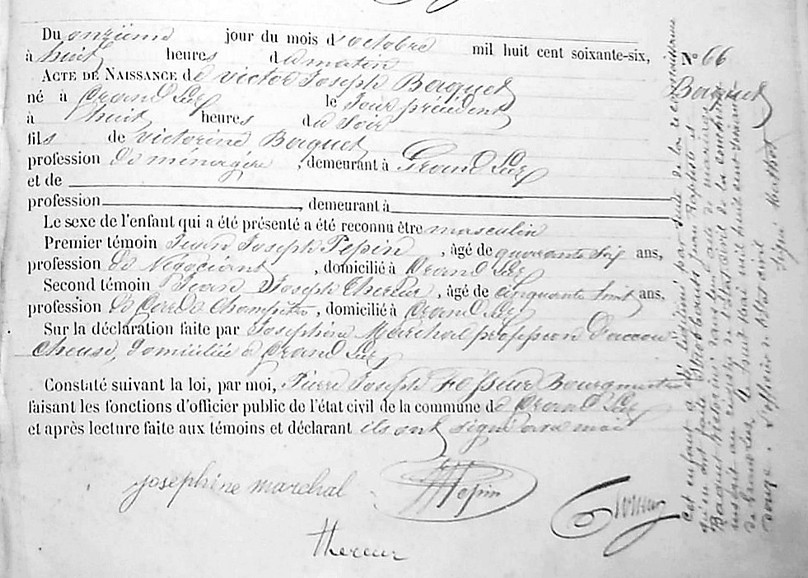 Du onzième jour du mois d'octobre mil huit cent soixante-six,
à huit heures du matin
ACTE DE NAISSANCE de Victor Joseph Baquet
né à Grand Leez le jour précédent
à huit heures du soir
fils de Victorine Baquet
profession de ménagère, demeurant à Grand Leez
et de
profession, demeurant à
Le sexe de l'enfant qui a été présenté a été reconnu être masculin
Premier témoin Jean Joseph Pepin, âgé de quarante six ans,
profession de Négociant, domicilié à Grand Leez
Second témoin Jean Joseph Thereur, âgé de cinquante huit ans,
profession de Garde Champêtre, domicilié à Grand Leez
Sur la déclaration faite par Josephine Maréchal profession d'accou-
cheuse, domiciliée à Grand Leez
Constaté suivant la loi, par moi, Pierre Joseph Bourgmestre
faisant les fonctions d'officier public de l'état civil de la commune de Grand Leez
et après lecture faite aux témoins et déclarant ils ont signé avec moi
Josephine marchal
Pepin
thereur
N° 66
Baquet
Cet enfant a été légitimé par suite de la reconnaissance
Jean Baptiste
Baquet Victorine dans l'acte de mariage
inscrit au registre de l'état civil de la commune
de le huit mai mil huit cent
L'officier de l'état civil